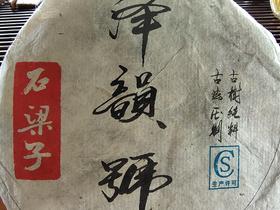 古樹純料
古法压制
韻號
石梁子
QS
生产许可